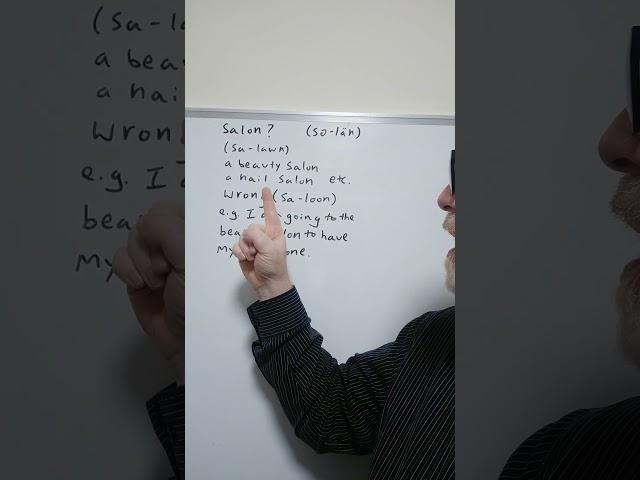 Salon? (sə-län)
(Sa-lawn)
a beauty salon
a nail salon etc.
Wron (Sa-loon)
e.g. I a going to the
bea lon to have
my one.